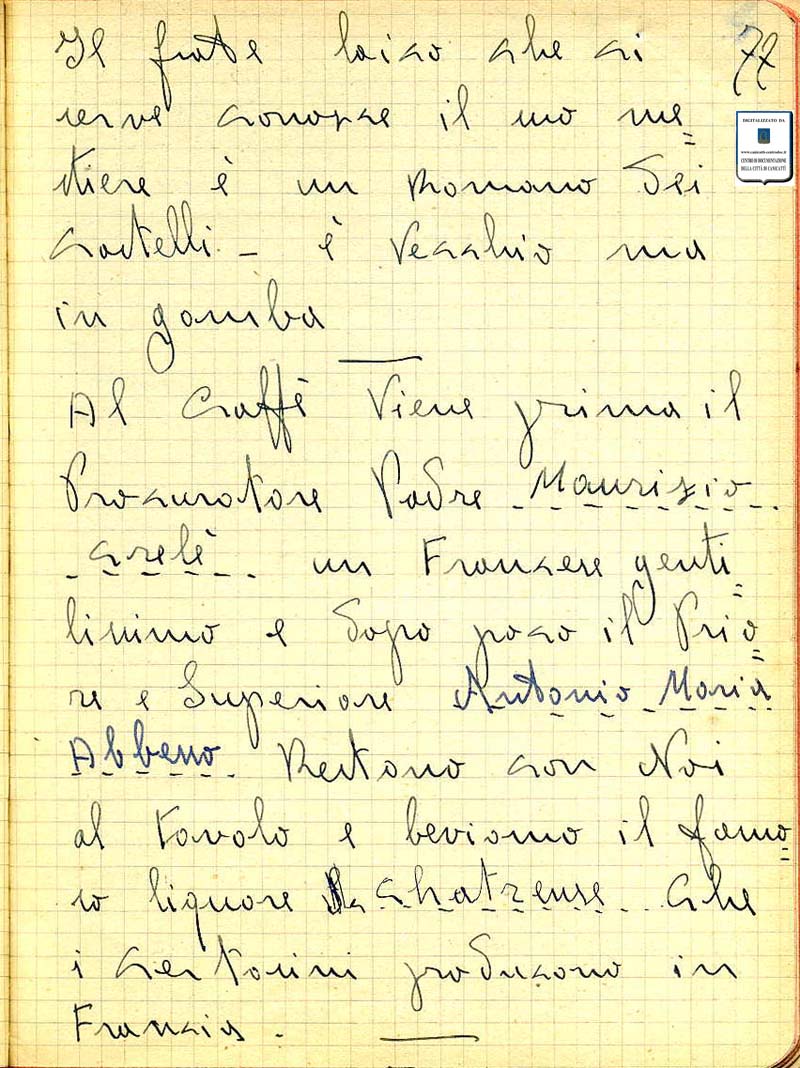 Il frate laico che ci
77
serve conosce il suo me=
DIGITALIZZATO DA
www.canicatti-centrodoc.it
CENTRO DI DOCUMENTAZIONE
DELLA CITTÀ DI CANICATTÌ
stiere è un Romano dei
Castelli - è vecchio ma
in gamba
Al Caffè viene prima il
Procuratore Padre Maurizio
crelè un Francese genti=
lissimo e dopo poco il Prio=
re e Superiore Antonio Maria
Abbeno Restano con Noi
al tavolo e beviamo il famo=
so liquore chatreuse che
i certosini producono in
Francia.